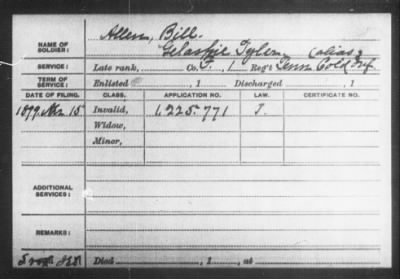 Allen, Bill.
NAME OF SOLDIER: Gelaspie Tyler (alias)
SERVICE: Late rank, Co. F, 1 Reg't Tenn Cold Inf.
TERM OF SERVICE: Enlisted , 1 Discharged , 1
DATE OF FILING. CLASS. APPLICATION NO. LAW. CERTIFICATE NO.
15 Invalid, 1,225,771
Widow,
Minor,
ADDITIONAL SERVICES:
REMARKS:
Died , 1 , at